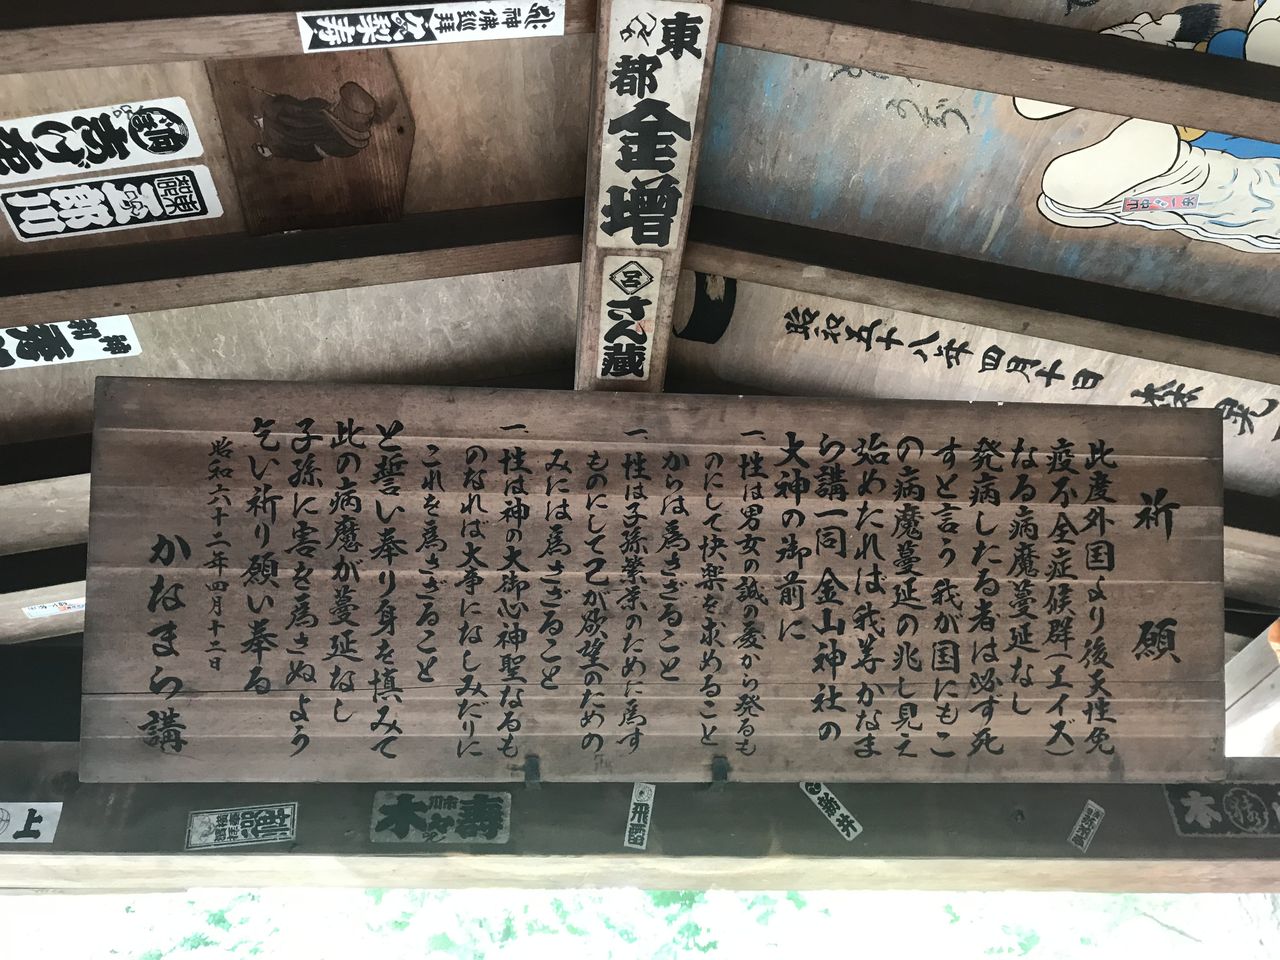 祈願
此度外国より後天性免
疫不全症候群(エイズ)
なる病魔蔓延なし
発病したる者は必ず死
すと言う我が国にもこ
の病魔蔓延の兆し見え
始めたれば我等かなま
ら講一同金山神社の
大神の御前に
一、性は男女の誠の愛から発るも
のにして快楽を求めること
からは為さざること
一、性は子孫繁栄のために為す
ものにして己が欲望のための
みには為さざること
一、性は神の大御心神聖なるも
のなれば大事になしみだりに
これを為さざること
と誓い奉り身を慎みて
此の病魔が蔓延なし
子孫に害を為さぬよう
乞い祈り願い奉る
昭和六十二年四月十二日
かなまら講
昭和五十八年四月十日
東都
金増
さん蔵
神佛巡拝
あげ左
三郎川
飛
新井
寿
木
上